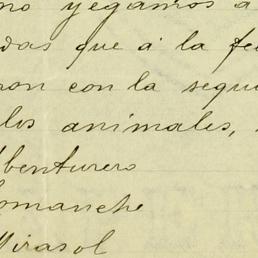 no yegamos a
das que á la fe
ron con la segu
los animales,
Abenturero
Comanche
Mirasol